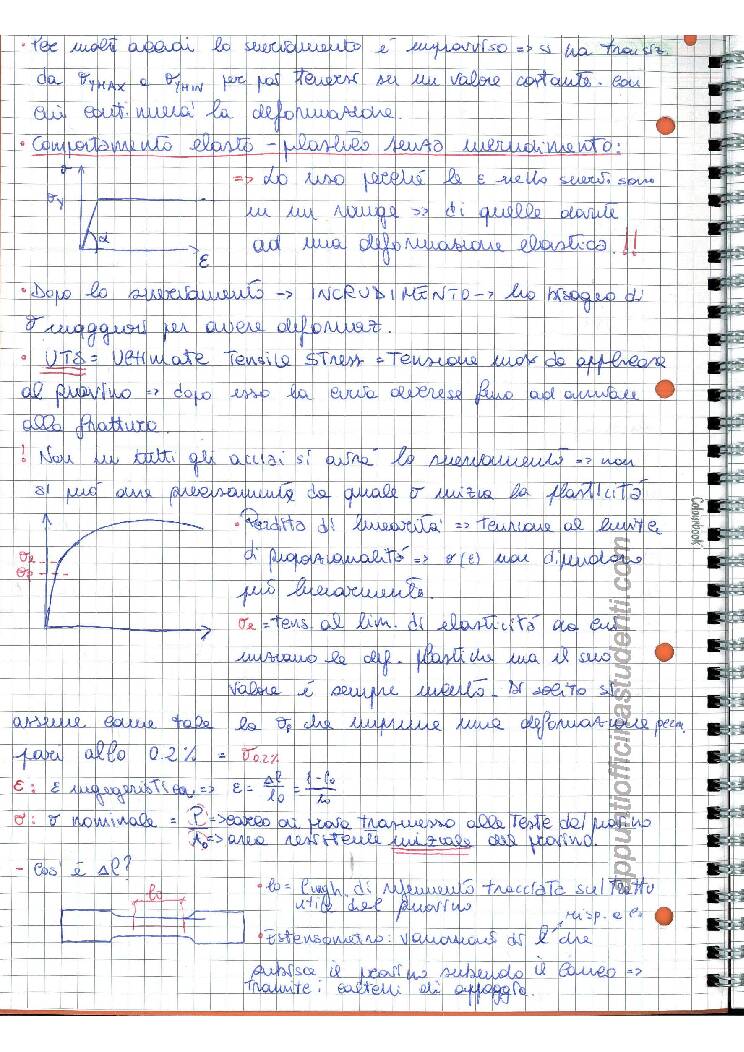 · Per molti acciai lo snervamento è improvviso => si ha transiz.
da σyMAX a σyMIN per poi tenersi su un valore costante con
cui continuerà la deformazione.
· Comportamento elasto-plastico senza incrudimento:
σ
σy
α
ε
=> Lo uso perché le ε nello snerv. sono
in un range >> di quelle dovute
ad una deformazione elastica.!!
· Dopo lo snervamento -> INCRUDIMENTO -> ho bisogno di
σ maggiori per avere deformaz.
· UTS = Ultimate Tensile Stress = Tensione max da applicare
al provino => dopo esso la curva decresce fino ad arrivare
alla frattura.
! Non in tutti gli acciai si avrà lo snervamento => non
si può dire precisamente da quale σ inizia la plasticità
σe
σp
· Perdita di linearità => tensione al limite
di proporzionalità => σ(ε) non dipendono
più linearmente.
σe = tens. al lim. di elasticità da cui
iniziano le def. plastiche ma il suo
valore è sempre incerto. Di solito si
assume come tale la σ che imprime una deformazione perm.
pari allo 0.2% = σ0.2%
ε: ε ingegneristica => ε = Δl/l0 = l-l0/l0
σ: σ nominale = P => carico di prova trasmesso alle teste del provino
A0 => area resistente iniziale del provino.
- Cos'è Δl?
l0
· l0 = lungh. di riferimento tracciata sul tratto
utile del provino
risp. a l0
· Estensometro: variazioni di l che
subisce il provino subendo il carico =>
tramite i coltelli di appoggio.
Colourbook
appuntiofficinastudenti.com